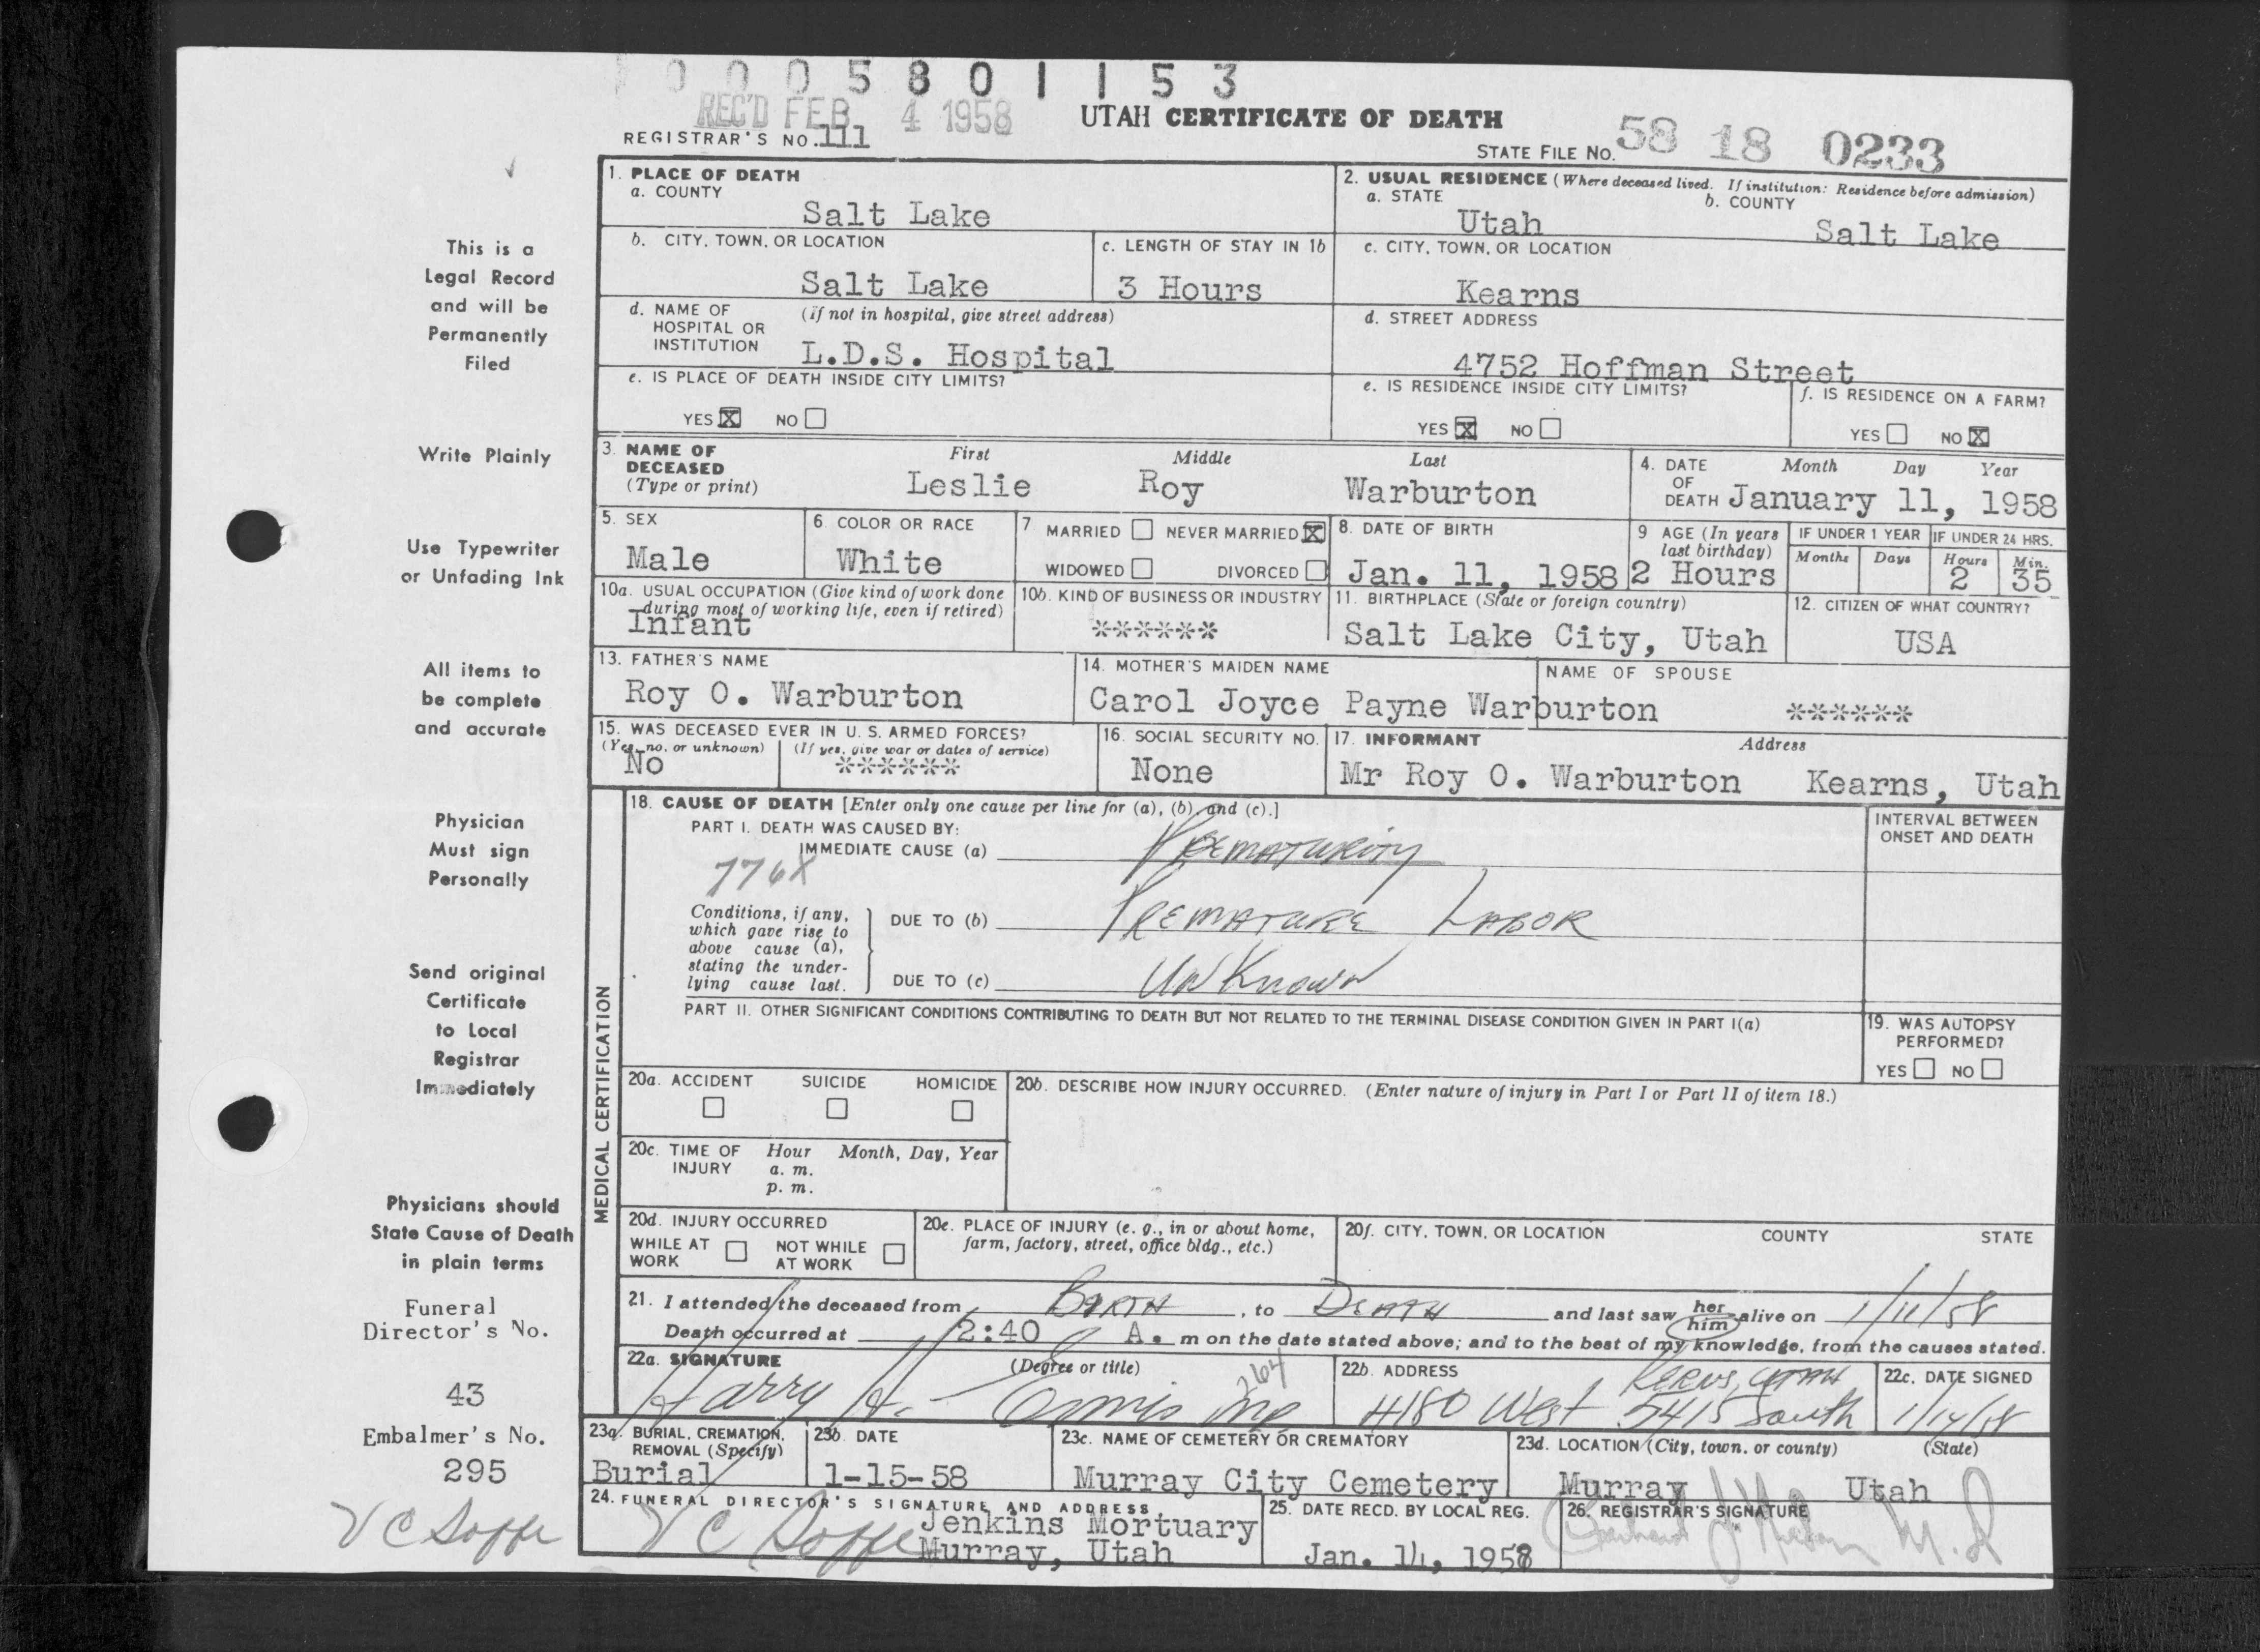 0 0 0 5 8 0 1 1 5 3
REC'D FEB 4 1958
UTAH CERTIFICATE OF DEATH
REGISTRAR'S NO. 111
STATE FILE NO. 58 18 0233
This is a
Legal Record
and will be
Permanently
Filed
Write Plainly
Use Typewriter
or Unfading Ink
All items to
be complete
and accurate
Physician
Must sign
Personally
Send original
Certificate
to Local
Registrar
Immediately
Physicians should
State Cause of Death
in plain terms
Funeral
Director's No.
43
Embalmer's No.
295
V C Soffe
1. PLACE OF DEATH
a. COUNTY
Salt Lake
2. USUAL RESIDENCE (Where deceased lived. If institution: Residence before admission)
a. STATE
Utah
b. COUNTY
Salt Lake
b. CITY, TOWN, OR LOCATION
Salt Lake
c. LENGTH OF STAY IN 1b
3 Hours
c. CITY, TOWN, OR LOCATION
Kearns
d. NAME OF HOSPITAL OR INSTITUTION
(If not in hospital, give street address)
L.D.S. Hospital
d. STREET ADDRESS
4752 Hoffman Street
e. IS PLACE OF DEATH INSIDE CITY LIMITS?
YES X NO
e. IS RESIDENCE INSIDE CITY LIMITS?
YES X NO
f. IS RESIDENCE ON A FARM?
YES NO X
3. NAME OF DECEASED (Type or print)
First Middle Last
Leslie Roy Warburton
4. DATE OF DEATH
Month Day Year
January 11, 1958
5. SEX
Male
6. COLOR OR RACE
White
7. MARRIED NEVER MARRIED X
WIDOWED DIVORCED
8. DATE OF BIRTH
Jan. 11, 1958
9 AGE (In years last birthday)
2 Hours
IF UNDER 1 YEAR
Months Days
IF UNDER 24 HRS.
Hours Min.
2 35
10a. USUAL OCCUPATION (Give kind of work done during most of working life, even if retired)
Infant
10b. KIND OF BUSINESS OR INDUSTRY
******
11. BIRTHPLACE (State or foreign country)
Salt Lake City, Utah
12. CITIZEN OF WHAT COUNTRY?
USA
13. FATHER'S NAME
Roy O. Warburton
14. MOTHER'S MAIDEN NAME
Carol Joyce Payne Warburton
NAME OF SPOUSE
******
15. WAS DECEASED EVER IN U. S. ARMED FORCES?
(Yes, no, or unknown) (If yes, give war or dates of service)
No ******
16. SOCIAL SECURITY NO.
None
17. INFORMANT Address
Mr Roy O. Warburton Kearns, Utah
MEDICAL CERTIFICATION
18. CAUSE OF DEATH [Enter only one cause per line for (a), (b), and (c).]
INTERVAL BETWEEN ONSET AND DEATH
PART I. DEATH WAS CAUSED BY:
IMMEDIATE CAUSE (a) PREMATURITY
776X
Conditions, if any, which gave rise to above cause (a), stating the underlying cause last.
DUE TO (b) PREMATURE LABOR
DUE TO (c) UNKNOWN
PART II. OTHER SIGNIFICANT CONDITIONS CONTRIBUTING TO DEATH BUT NOT RELATED TO THE TERMINAL DISEASE CONDITION GIVEN IN PART I(a)
19. WAS AUTOPSY PERFORMED?
YES NO
20a. ACCIDENT SUICIDE HOMICIDE
20b. DESCRIBE HOW INJURY OCCURRED. (Enter nature of injury in Part I or Part II of item 18.)
20c. TIME OF INJURY
Hour Month, Day, Year
a. m.
p. m.
20d. INJURY OCCURRED
WHILE AT WORK NOT WHILE AT WORK
20e. PLACE OF INJURY (e. g., in or about home, farm, factory, street, office bldg., etc.)
20f. CITY, TOWN, OR LOCATION COUNTY STATE
21. I attended the deceased from BIRTH, to DEATH and last saw her him alive on 1/11/58
Death occurred at 2:40 A. m on the date stated above; and to the best of my knowledge, from the causes stated.
22a. SIGNATURE (Degree or title)
Harry H. MD
264
22b. ADDRESS
Kerns, Utah
4180 West 5415 South
22c. DATE SIGNED
1/14/58
23a. BURIAL, CREMATION, REMOVAL (Specify)
Burial
23b. DATE
1-15-58
23c. NAME OF CEMETERY OR CREMATORY
Murray City Cemetery
23d. LOCATION (City, town, or county) (State)
Murray Utah
24. FUNERAL DIRECTOR'S SIGNATURE AND ADDRESS
V C Soffe Jenkins Mortuary
Murray, Utah
25. DATE RECD. BY LOCAL REG.
Jan. 14, 1958
26. REGISTRAR'S SIGNATURE
M.D.